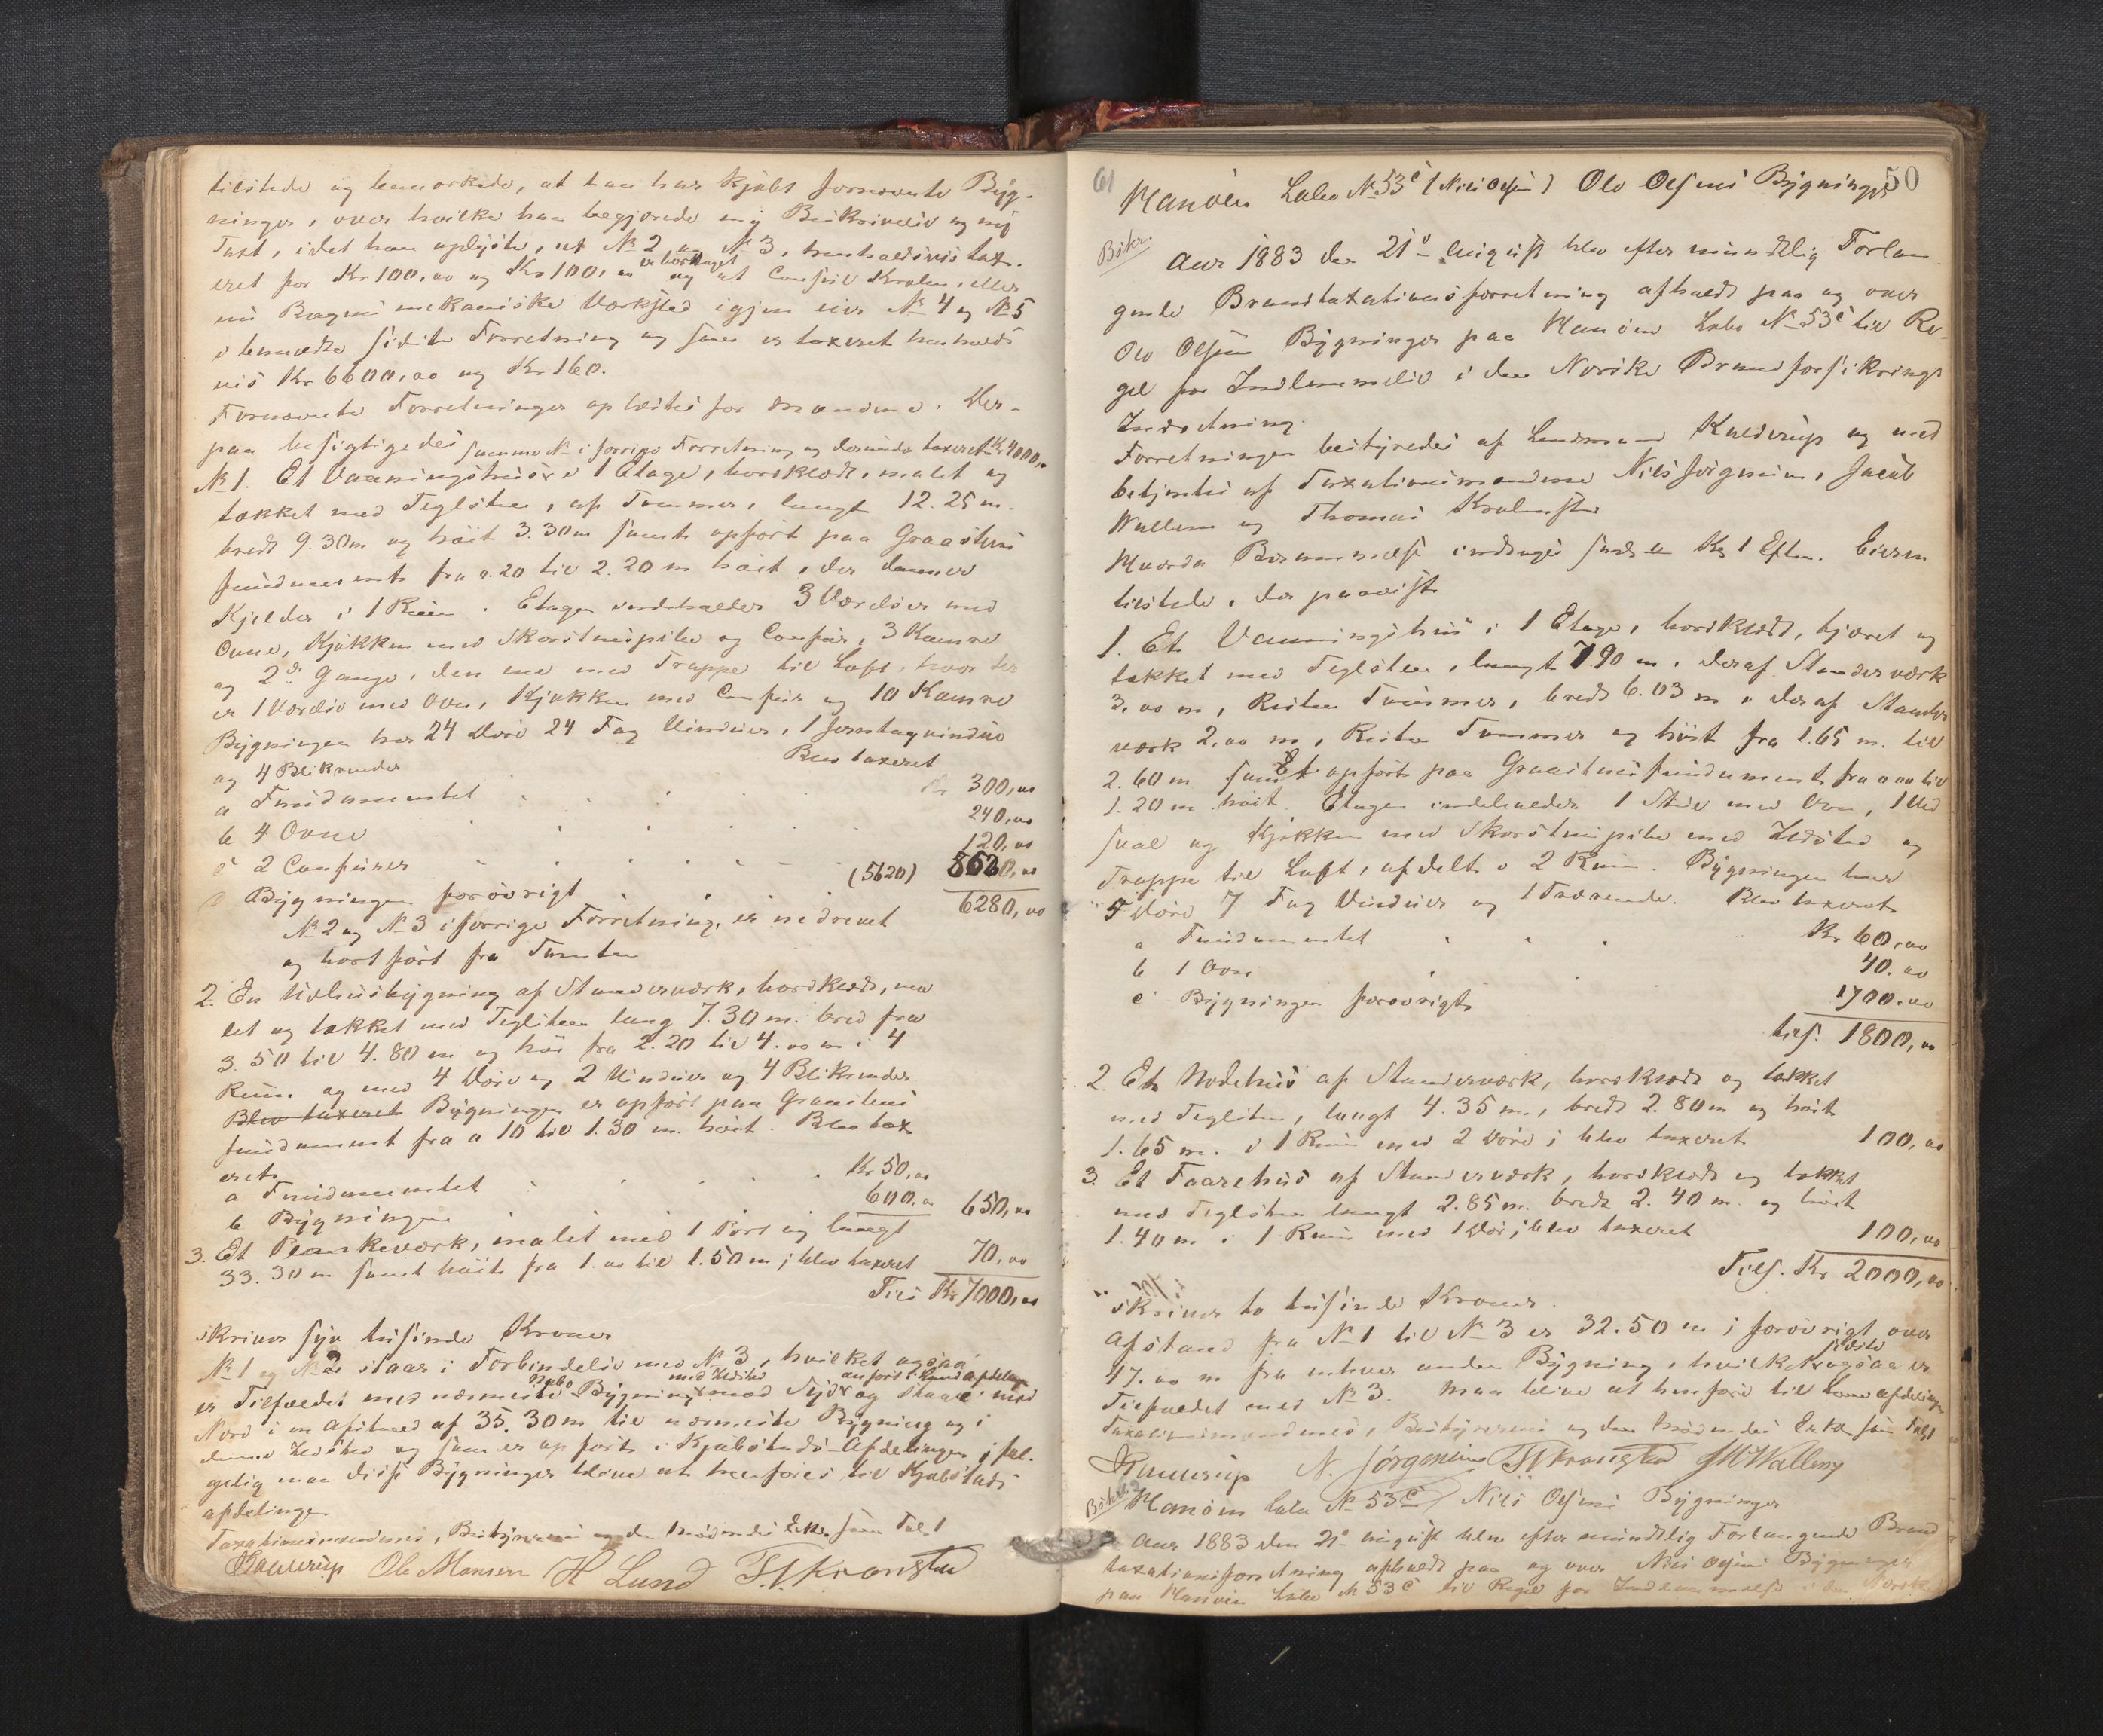 tilstede og bemærkede, at han har kjøbt fornævnte Byg-
ninger, over hvilke han begjærede ny Beskrivelse og ny
Taxt, idet han oplyste, at № 2 og № 3, henholdsvis tax-
eret for Kr 100,00 og Kr 100,00 er borttaget og at Consul Krohn, eller
mekaniske Værksted igjen eier № 4 og № 5
i benævnte sidste Forretning og som er taxeret henholds
vis Kr 6600,00 og Kr 160.
Fornævnte Forretninger oplæstes for Mændene. Der-
paa besigtigedes
samme № i forrige Forretning og derunder taxeret Kr 4000,00
№ 1. Et Vaaningshus i 1 Etage, bordklædt, malet og
tækket med Teglsten, af Tømmer, langt 12.25 m.
bredt 9.30 m og høit 3.30 m samt opført paa Graastens
fundament fra 0.20 til 2.20 m høit, der danner
Kjelder i 1 Rum. Etagen indeholder 3 Værelser med
Ovne, Kjøkken med Skorstenspibe og Comfur, 3 Kamre
og 2de Gange, den ene med Trappe til Loft, hvor der
er 1 Værelse med Ovn, 1 Kjøkken med Comfur og 10 Kamre
Bygningen har 24 Døre 24 Fag Vinduer, 1 Jerntagvindue
og 4 Blikrender Blev taxeret
a Fundamentet Kr 300,00
b 4 Ovne 240,00
c 2 Comfurer 120,00
d Bygningen forøvrigt (5620) 5620,00
6280,00
№ 2 og № 3 i forrige Forretning, er nedrevet
og bortført fra Tomten
2. En Udhusbygning af Standerværk, bordklædt, ma
let og tækket med Teglsten lang 7.30 m. bred fra
3.50 til 4.80 m og høi fra 2.20 til 4.00 m i 4
Rum og med 4 Døre og 2 Vinduer og 4 Blikrender
Blev taxeret Bygningen er opført paa Graastens
fundament fra 0.10 til 1.30 m. høit. Blev tax
eret
a Fundamentet Kr 50,00
b Bygningen 600,00 650,00
3. Et Plankeværk, malet med 1 Port og langt
33.30 m samt høit fra 1.00 til 1.50 m; blev taxeret 70,00
Tils Kr 7000,00
skriver syv tusinde Kroner
№ 1 og № 2 staar i Forbindelse med № 3, hvilket ogsaa
er Tilfældet med nærmeste Nabo Bygning med Ildsted mod Syd anført i Landafdelingen og staar mod
Nord i en Afstand af 35.30 m til nærmeste Bygning og i
denne Ildsted og som er opført i Kjøbstads-Afdelingen; føl-
gelig maa disse Bygninger blive at henføres til Kjøbstads
afdelingen
Taxationsmændenes, Bestyrerens og den mødendes Eder som Talt
Kalderup Ole Monsen H Lund T. Kronstad
61
50
Hanøen Labo № 53c (Nils Olsen) Ole Olsens Bygninger
Bokr.
Aar 1883 den 21de August blev efter mundtlig Forlan
gende Brandtaxationsforretning afholdt paa og over
Ole Olsens Bygninger paa Hanøen Labo № 53c til Re-
gel for Indlemmelse i den Norske Brandforsikrings
Indretning.
Forretningen bestyredes af Lensmand Kalderup og med
betjentes af Taxationsmændene Nils Jørgensen, Jacob
Wallem og Thomas Krohnstad
Hvorda Boemmelse indtages sendes Kl 1 Efterm. Eieren
tilstede, der paaviste
1. Et Vaaningshus i 1 Etage, bordklædt, tjæret og
tækket med Teglsten, langt 7.90 m. deraf Standerværk
3,00 m, Resten Tømmer, bredt 6.03 m. deraf Stander
værk 2,00 m, Resten Tømmer og høit fra 1.65 m. til
2.60 m samt opført paa Graastensfundament fra 0.00 til
1.20 m høit. Etagen indeholder 1 Stue med Ovn, 1 Ved
sval og Kjøkken med Skorstenspibe med Ildsted og
Trappe til Loft, afdelt i 2 Rum. Bygningen har
5 Døre 7 Fag Vinduer og 1 Trærende. Blev taxeret
a Fundamentet Kr 60,00
b 1 Ovn 40.00
c Bygningen forøvrigt 1700.00
tils. 1800,00
2. Et Nødehus af Standerværk, bordklædt og tækket
med Teglsten, langt 4.35 m., bredt 2.80 m og høit
1.65 m. i 1 Rum med 2 Døre; blev taxeret 100,00
3. Et Faarehus af Standerværk, bordklædt og tækket
med Teglsten langt 2.85 m. bredt 2.40 m. og høit
1.40 m i 1 Rum med 1 Dør; blev taxeret 100,00
Tils. Kr 2000,00
skriver to tusinde Kroner.
Afstand fra № 1 til № 3 er 32.50 m; forøvrigt over
47.00 m fra enhver anden Bygning, hvilket sidste ogsaa er
Tilfældet med № 3. maa blive at henføre til Landafdelingen
Taxationsmændenes, Bestyrerens og den mødendes Eder som Talt
Kalderup N. Jørgensen T Kronstad J Wallem
Bokr.
Hanøen Labo № 53c Nils Olsens Bygninger
Aar 1883 den 21de August blev efter mundtlig Forlangende Brand
taxationsforretning afholdt paa og over Nils Olsens Bygninger
paa Hanøen Labo № 53c til Regel for Indlemmelse i den Norske